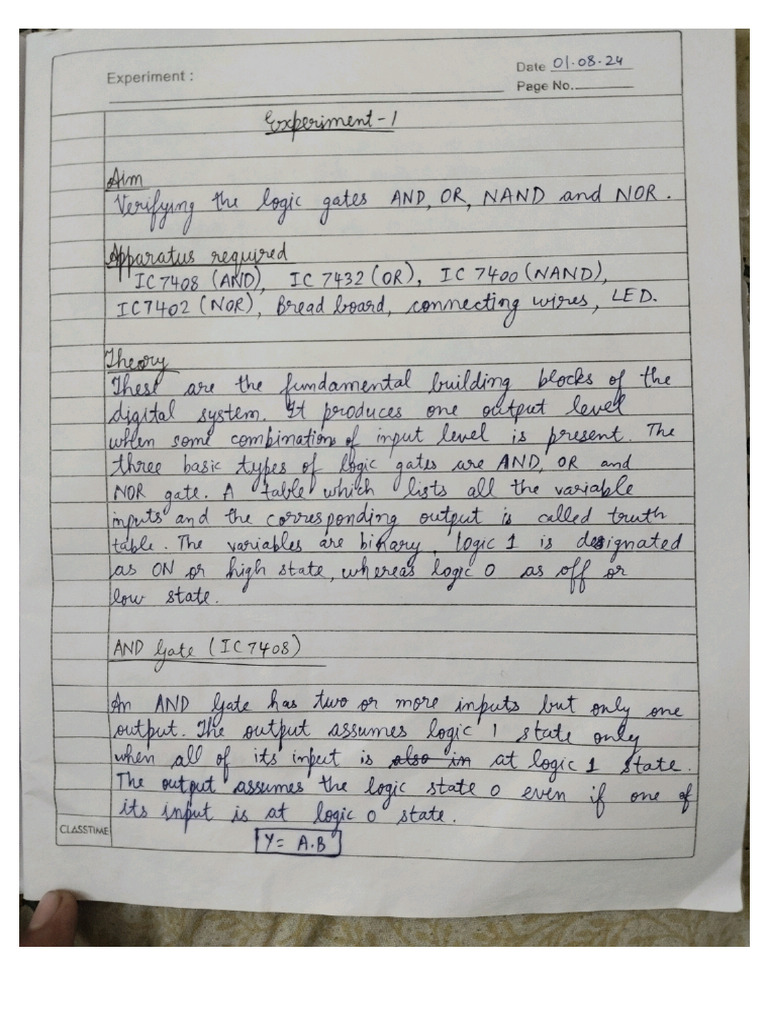 Experiment :
Date 01-08-24
Page No.
Experiment-1
Aim
Verifying the logic gates AND, OR, NAND and NOR.
Apparatus required
IC7408 (AND), IC 7432 (OR), IC 7400 (NAND),
IC7402 (NOR), Bread board, connecting wires, LED.
Theory
These are the fundamental building blocks of the
digital system. It produces one output level
when some combinations of input level is present. The
three basic types of logic gates are AND, OR and
NOR gate. A table which lists all the variable
inputs and the corresponding output is called truth
table. The variables are binary, logic 1 is designated
as ON or high state, whereas logic 0 as off or
low state.
AND Gate (IC7408)
An AND Gate has two or more inputs but only one
output. The output assumes logic 1 state only
when all of its input is also in at logic 1 state.
The output assumes the logic state 0 even if one of
its input is at logic 0 state.
CLASSTIME
Y= A.B